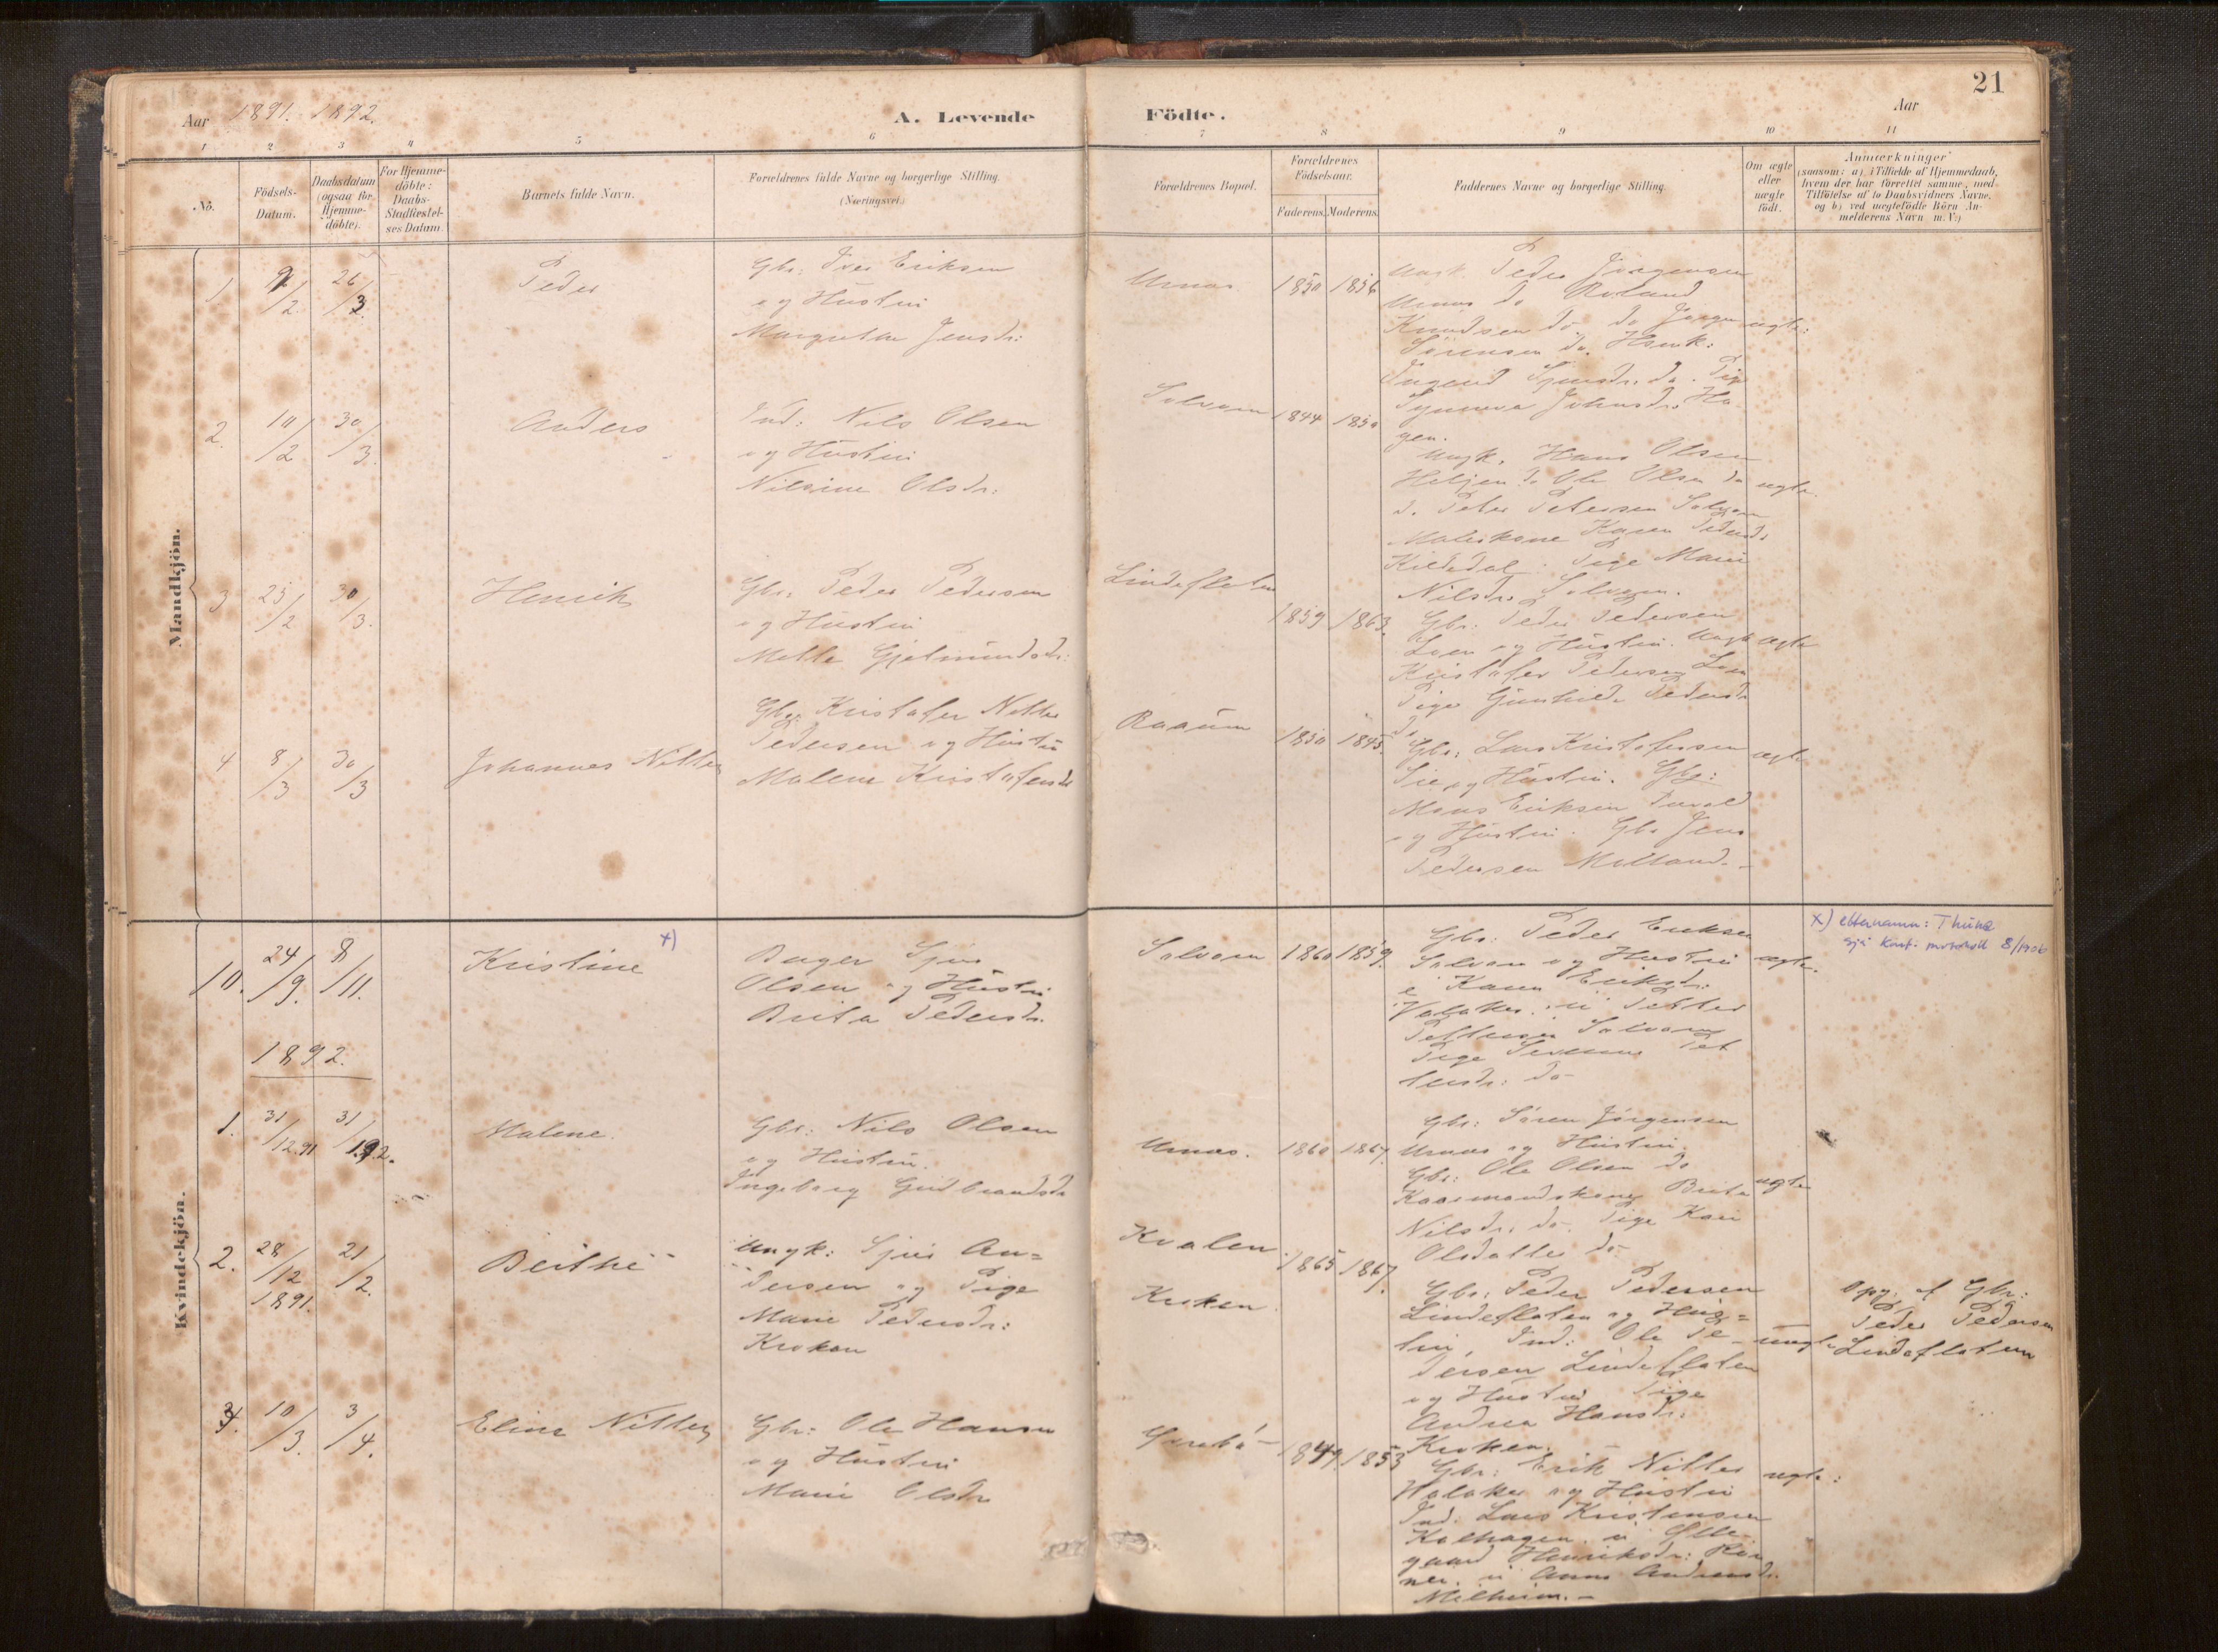 21
Aar 1891. 1892.
A. Levende Födte.
Aar
1 2 3 4 5 6 7 8 9 10 11
No.
Födsels-
Datum.
Daabsdatum
(ogsaa for
Hjemme-
döbte).
For Hjemme-
döbte:
Daabs-
Stadfæstel-
ses Datum.
Barnets fulde Navn.
Forældrenes fulde Navne og borgerlige Stilling.
(Næringsvei.)
Forældrenes Bopæl.
Forældrenes
Födselsaar.
Faderens. Moderens.
Faddernes Navne og borgerlige Stilling.
Om ægte
eller
uægte
födt.
Anmærkninger
(saasom: a) i Tilfælde af Hjemmedaab,
hvem der har forrettet samme, med
Tilföielse af to Daabsvidners Navne,
og b) ved uægtefödte Börn An-
melderens Navn m. V.)
Mandkjön.
1
/2
26/3
Peder
Gbr: Iver Eriksen
og Hustru
Margrethe Jensdr:
Urnæs
1850 1856
Ungk. Peder Jörgensen
Urnæs do Roland
Knudsen do do Jörgen
Sörensen do.
ægte:
Synneva Johnsdr. Ha-
gen.
2.
10/2
30/3.
Anders
Ind: Nils Olsen
og Hustru
Nilsine Olsdr:
Solvorn
1844 1850
Ungk. Hans Olsen
do Ole Olsen do
do Peter Petersen Solvorn
Malerkone Karen Pedersd.
Pige Marie
Nilsdr. Solvorn.
ægte.
3
25/2
30/3.
Henrik
Gbr: Peder Pedersen
og Hustru
Mette Gjetmundsdr:
Lindefloten
1859 1863.
Gbr: Peder Pedersen
Loen og Hustru. Ungk
Kristofer Pedersen Loen
Pige Gunhild Pedersdr
do
ægte
4
8/3
30/3
Johannes Nitter
Gbr: Kristofer Nitter
Pedersen og Hustru
Malene Kristofersdr
Raaum
1850 1845.
Gbr: Lars Kristofersen
og Hustru. Gbr:
Mons Eriksen
og Hustru. Gbr Jens
Pedersen Melland.-
ægte
Kvindekjön.
10.
24/9.
8/11.
Kristine x)
Buger Sjur
Olsen og Hustru
Brita Pedersdr.
Solvorn
1860 1859.
Gbr: Peder Eriksen
Solvorn og Hustru
Karen Eriksdr:
Petter
Pettersen Solvorn
Pige Pet
tersdr: do
ægte.
x) etternamn: Thune
sjå Konf. protokoll 8/1906
1892.
1.
31/12.91
31/1.92.
Malene.
Gbr: Nils Olsen
og Hustru.
Ingeborg Gudbrandsdr
Urnæs.
1860 1867.
Gbr: Sören Jörgensen
Urnæs og Hustru.
Gbr: Ole Olsen do
Brita
Nilsdr. do. Pige Kari
Olsdatter do
ægte
2.
28/12
1891.
21/2.
Berthe
Ungk: Sjur An=
dersen og Pige
Marie Pedersdr:
Kroken
Kvalen.
Kroken.
1865 1867.
Gbr: Peder Pedersen
Lindefloten og Hus=
tru, Ind: Ole Pe-
dersen Lindefloten
og Hustru Pige
Andrea Hansdr.
Kroken.
uægte
Opg. af Gbr:
Peder Pedersen
Lindefloten
3.
10/3.
3/4.
Elina Nitter
Gbr: Ole Hansen
og Hustru
Marie Olsdr
1849. 1853
Gbr: Erik Nitter
og Hustru
Ind. Lars Kristensen
Kolhagen.
Henriksdr:
Anna Andersdr.
Melheim.-
ægte: